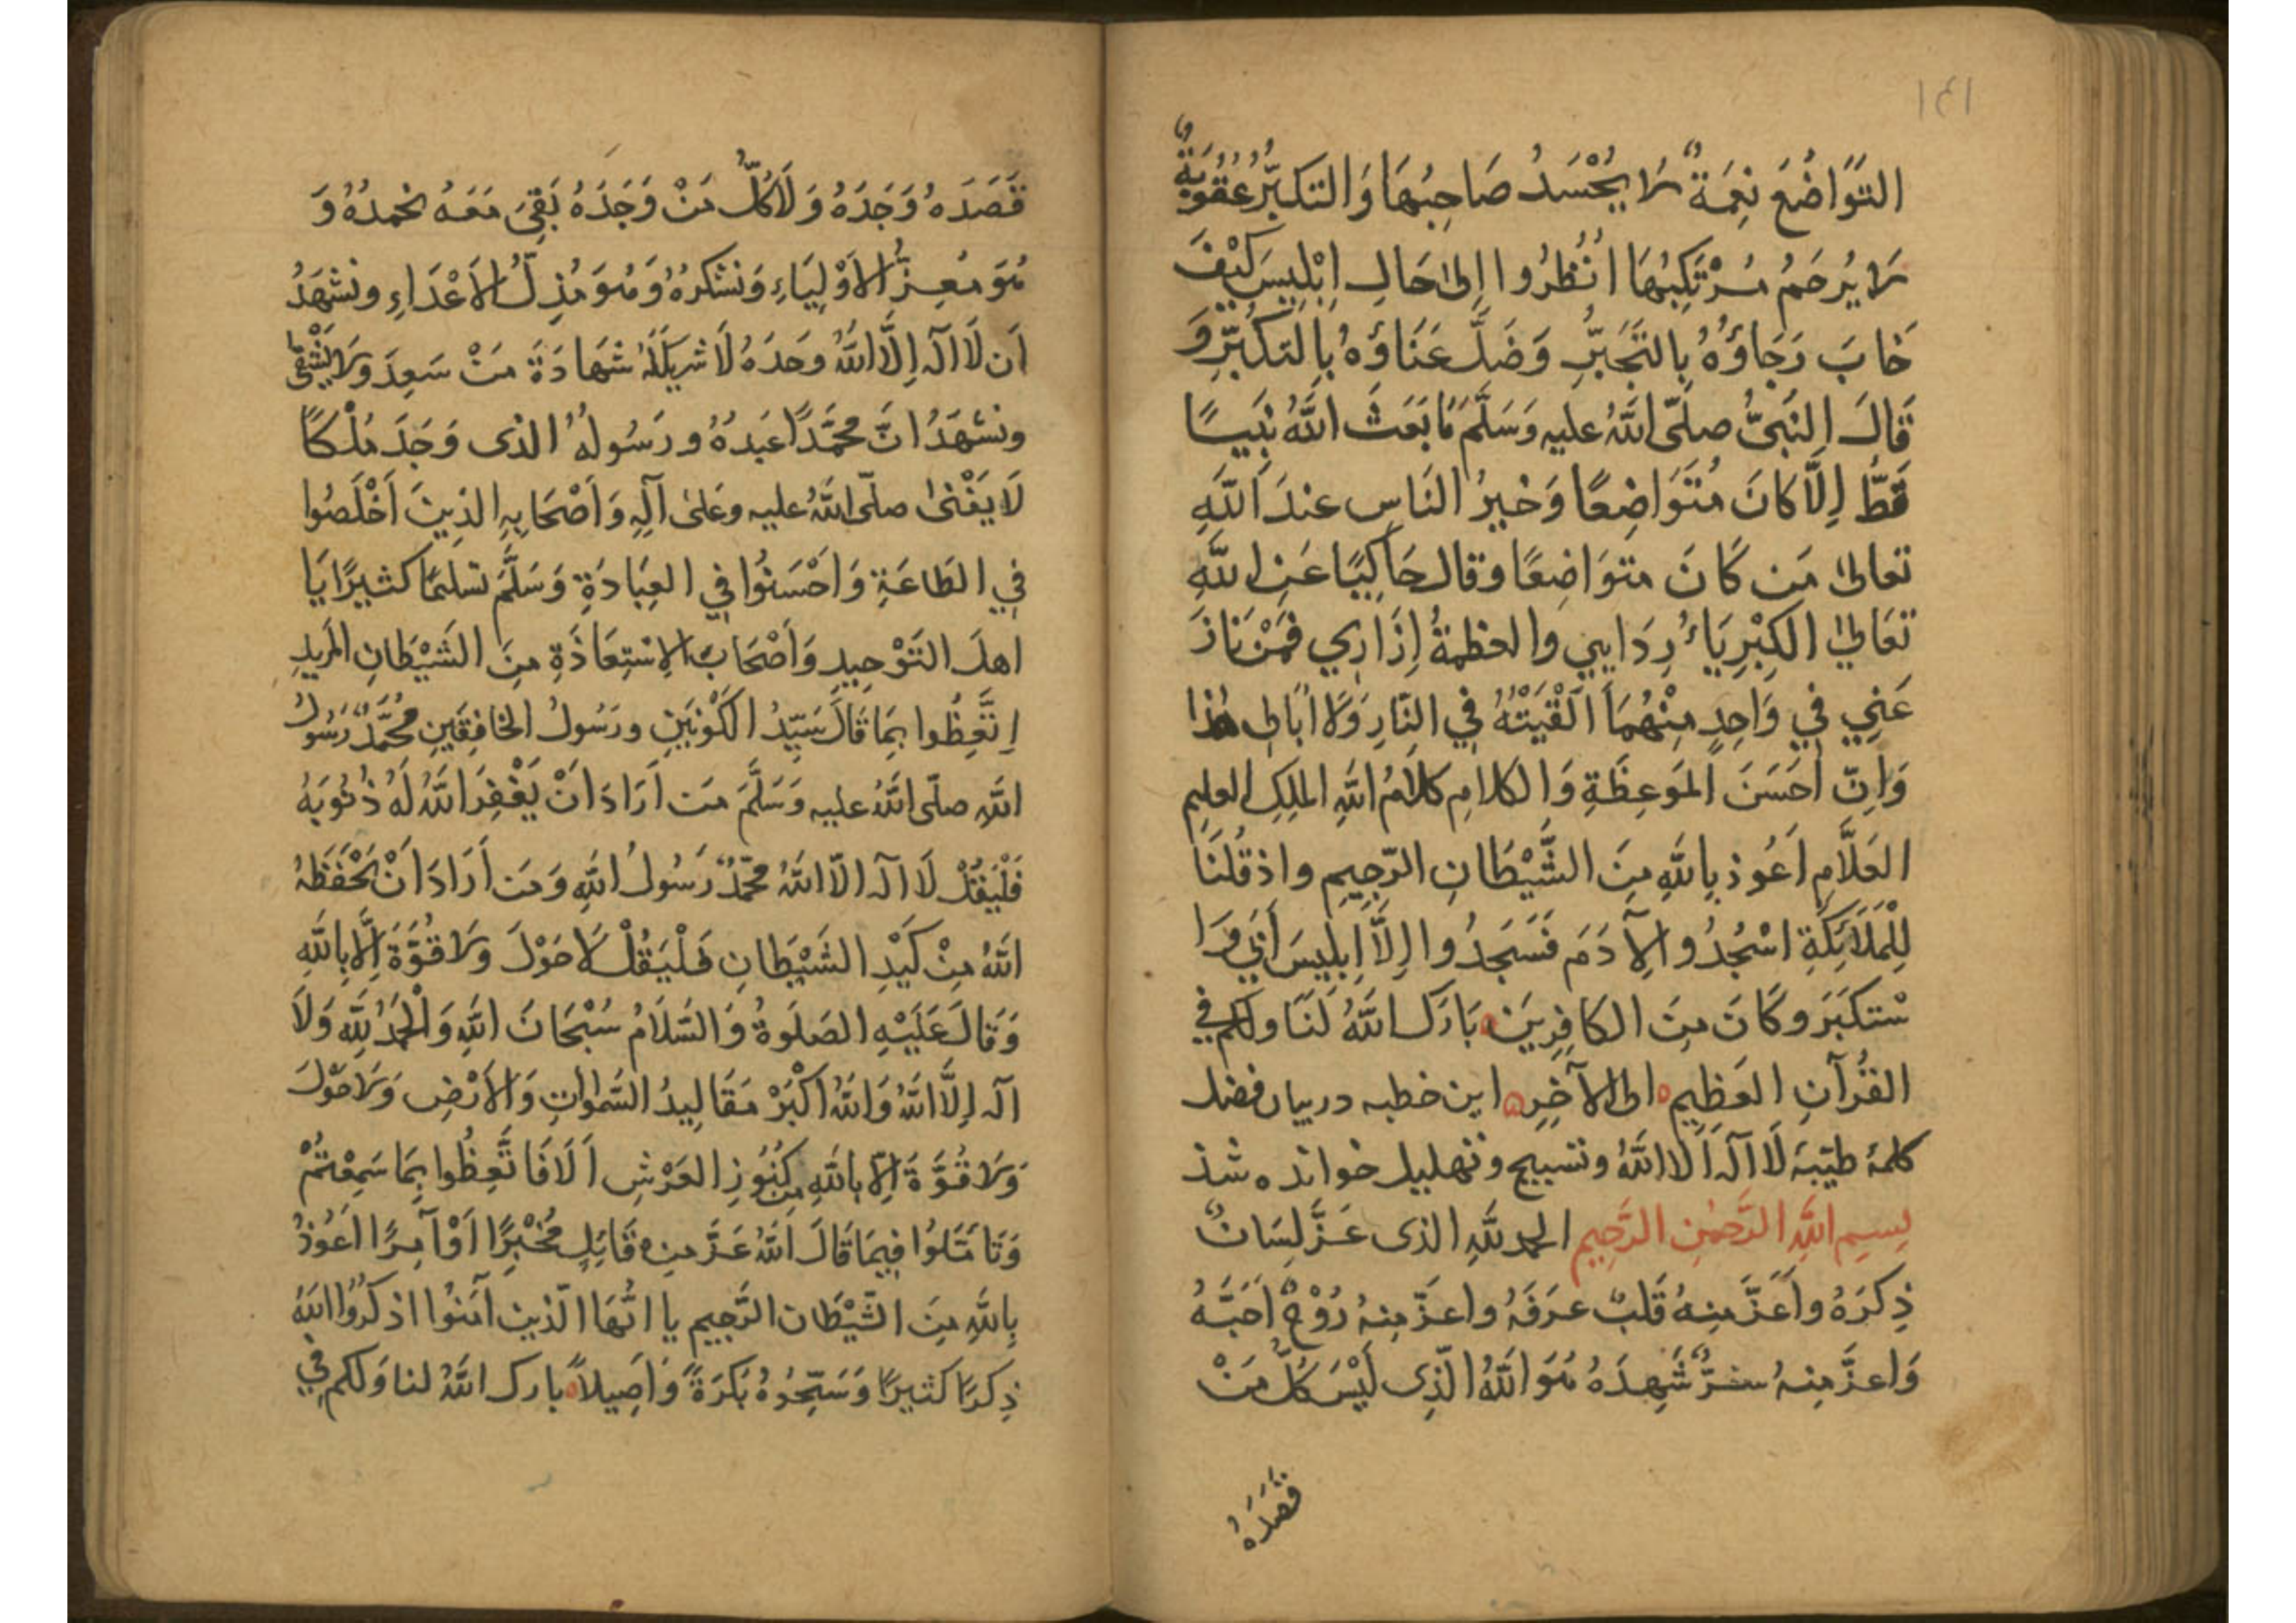 ١٤١
التَّوَاضُعَ نِعْمَةٌ لَا يُحْسَدُ صَاحِبُهَا وَالتَكَبُّرُ عُقُوبَةٌ
لَا يُرحَمُ مُرْتَكِبُهَا اُنْظُرُوا اِلىٰ حَالِ اِبْلِيسَ كَيْفَ
خَابَ رَجَاؤُهُ بِالتَّجَبُّرِ وَضَلَّ عَنَاؤهُ بِالتكَبُّرِ وَ
قَالَ النَبىُّ صلّى اللّٰهُ عليه وَسَلَّمَ مَا بَعَثَ اللّٰهُ نَبِيًّا
قَطُّ اِلَّا كَانَ مُتَوَاضِعًا وَخيرُ النَاسِ عندَ اللّٰهِ
تعالىٰ مَن كَانَ متوَاضِعًا وقال حَاكِيًا عَنِ اللّٰهِ
تعَالىٰ الكِبْرِيَاءُ رِدَايِي والعظمةُ اِزَارِي فَمَنْ نَازَ
عَنِي فِي وَاحِدٍ مِنْهُمَا اَلْقَيْتُهُ فِي النَّارِ وَلَا اُبَالِى هٰذا
وَاِنّ اَحَسَنَ المَوعِظَةِ وَالكلامِ كلَامُ اللّٰهِ الملِكِ العليم
العَلَّامِ اَعُوذ بِاللّٰهِ مِنَ الشَّيْطَانِ الرّجِيمِ واذ قُلنَا
لِلْمَلَائِكَةِ اسْجُدُوا لِآدَمَ فَسَجَدُوا اِلَّا اِبلِيسَ اَبٰى وَا
سْتكبَرَ وكَانَ مِنَ الكافِرِيَنَ بَارَكَ اللّٰهُ لَنَا ولكم فى
القُرآنِ العَظِيمِ الى الآخِرِ اين خطبه در بيان فضل
كلمهٔ طيّبَه لَا آلٰه اَلا اللّٰهُ وتسبيح وتهليل خوانده شذ
بِسمِ اللّٰهِ الرَّحمٰنِ الرَّحِيمِ الحمد للّٰهِ الذى عَزَّ لِسَانٌ
ذِكرَهُ واَعَزَّ مِنهُ قَلبٌ عرَفَهُ واعَزّ مِنهُ رُوْحٌ اَحَبَّهُ
وَاعزَّ مِنهُ سِرٌّ شَهِدَهُ هُوَ اللّٰهُ الّذِى لَيْسَ كلُّ مَنْ
قصَدَهُ
قَصَدَهُ وَجَدَهُ وَلَا كُلُّ مَنْ وَجَدَهُ بَقِىَ مَعَهُ نحمدُهُ وَ
هُوَ مُعِزُّ الاَوْلِيَاءِ وَنشكرُهُ وَهُوَ مُذِلُّ الاَعْدَاءِ ونشهَدُ
اَن لَا آلٰه اِلَّا اللّٰهُ وحَدَهُ لَا شرِيكَ لَهُ شهَادَةَ مَنْ سَعِدَ وَلَا يَشْقىٰ
ونشهَدُ انَّ محمَّدًا عَبدُهُ ورَسُولهُ الذى وَجَدَ مُلْكًا
لَا يَفْنىٰ صلّى اللّٰهُ عليه وعَلىٰ آلِهِ وَاَصْحَابِهِ الذِينَ اَخْلَصُوا
فِي الطَاعَةِ وَاَحْسَنوُا فِي العِبَادَةِ وَسَلَّمَ تسليمًا كثيرًا يَا
اهلَ التَوْحِيدِ وَاَصْحَابَ الاِسْتِعَاذَةِ مِنَ الشَيْطَانِ المَرِيدِ
اِتَّعِظُوا بِمَا قَالَ سَيِّدُ الكَوْنَيَنِ ورَسُولُ الخافِقَينِ مُحَمَّدٌ رَسُولُ
اللّٰهِ صلّى اللّٰهُ عليه وَسَلَّمَ مَن اَرَادَ اَنْ يَغْفِرَ اللّٰهُ لَهُ ذُنُوبَهُ
فَلْيَقُلْ لَا آلٰه الّا اللّٰهُ محمّدٌ رَسُولُ اللّٰهِ وَمَن اَرَادَ اَنْ يَحْفَظَهُ
اللّٰهُ مِنْ كَيْدِ الشَيْطَانِ فَلْيَقُلْ لَا حَوْلَ ولَا قُوَّةَ اِلَّا بِاللّٰهِ
وَقَالَ عَلَيْهِ الصَلَوةُ وَالسَّلَامُ سُبْحَانَ اللّٰهِ وَالْحَمْدُ لِلّٰهِ وَلَا
آلٰه اِلَّا اللّٰهُ وَاللّٰهُ اَكْبَرْ مَقَالِيدُ السَّمٰواتِ وَالاَرْضِ وَلَا حَوْلَ
وَلَا قُوَّةَ اِلّا بِاللّٰهِ مِن كُنُوزِ العَرْشِ اَلَا فَاتَّعِظُوا بِمَا سَمِعْتُمْ
وَتَأمَّلوُا فِيمَا قَالَ اللّٰهُ عَزَّ مِن قَايِلٍ مُخْبِرًا اَوْ آمِرًا اَعُوذُ
بِاللّٰهِ مِنَ الشَّيْطَانِ الرَّجِيم يا ايُّهَا الّذين آمَنوُا اذكُرُوا اللّٰهَ
ذِكرًا كثيرًا وَسَبِّحُوهُ بُكرَةً وَاَصِيلاً بارك اللّٰهُ لنا وَلكم فِي